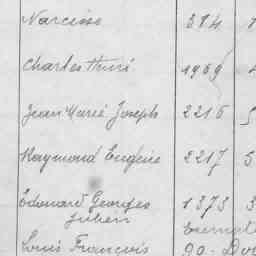 Narcisse 384
Charles Henri 1969 4
Jean Marie Joseph 2216 5
Raymond Eugène 2217 5
Edouard Georges 1373 3
Julien Exempté
Louis François 90- Dou